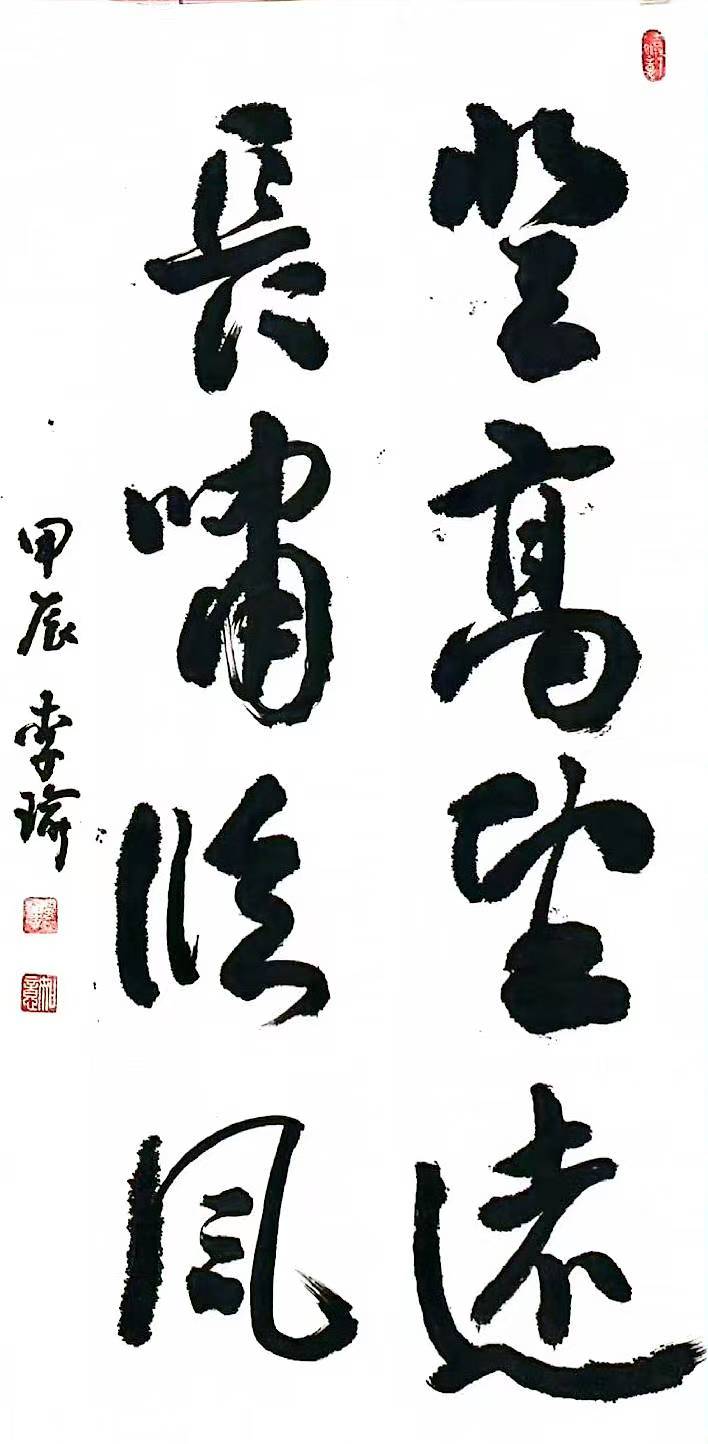 登高望遠
長嘯臨風
甲辰 李瑜